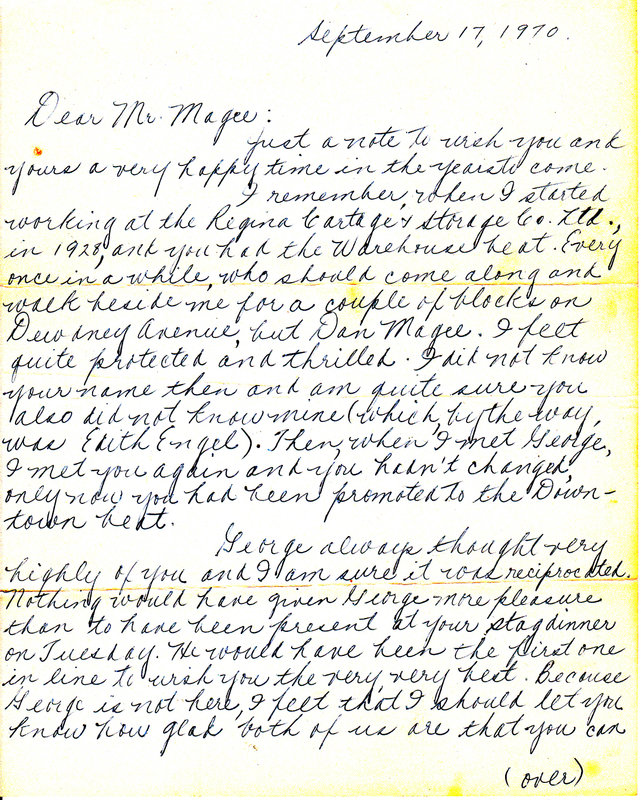 September 17, 1970.
Dear Mr. Magee:
Just a note to wish you and
yours a very happy time in the years to come.
I remember, when I started
working at the Regina Cartage & Storage Co. Ltd.,
in 1928, and you had the Warehouse beat. Every
once in a while, who should come along and
walk beside me for a couple of blocks on
Dewdney Avenue, but Dan Magee. I felt
quite protected and thrilled. I did not know
your name then and am quite sure you
also did not know mine (which, by the way,
was Edith Engel). Then, when I met George,
I met you again and you hadn't changed,
only now you had been promoted to the Down-
town beat.
George always thought very
highly of you and I am sure it was reciprocated.
Nothing would have given George more pleasure
than to have been present at your stag dinner
on Tuesday. He would have been the first one
in line to wish you the very, very best. Because
George is not here, I felt that I should let you
know how glad both of us are that you can
(over)